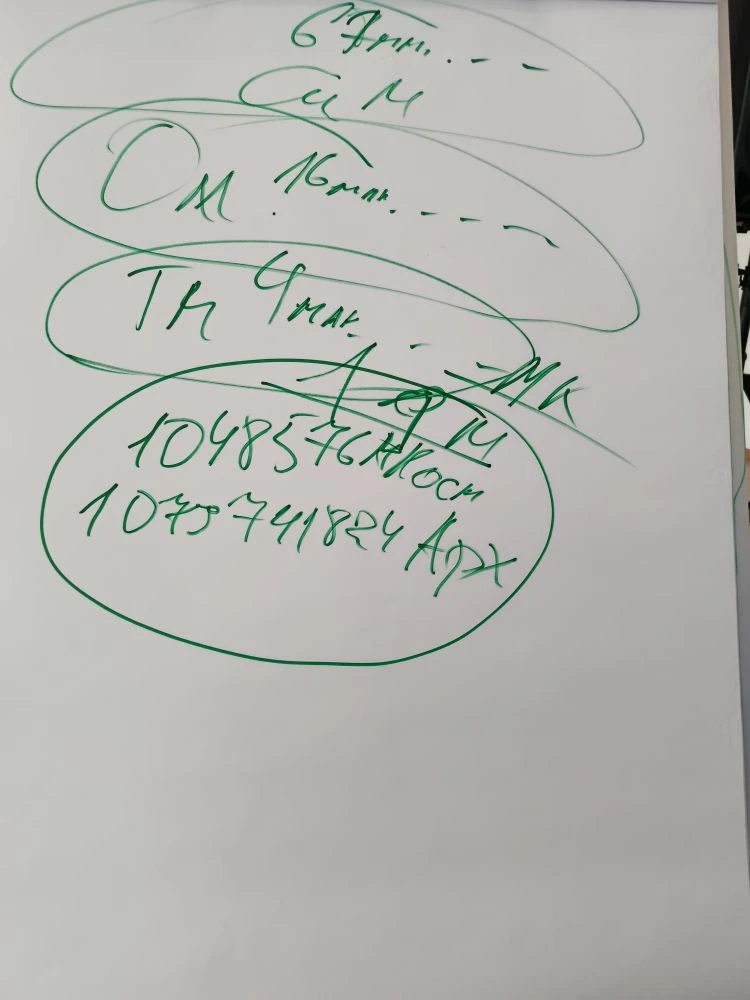 67млн. - - -
СиМ
ОМ 16млн. - - - -
ТМ 4млн. - - - МК
1 ФМ
1048576МКосм
1073741824 Арх